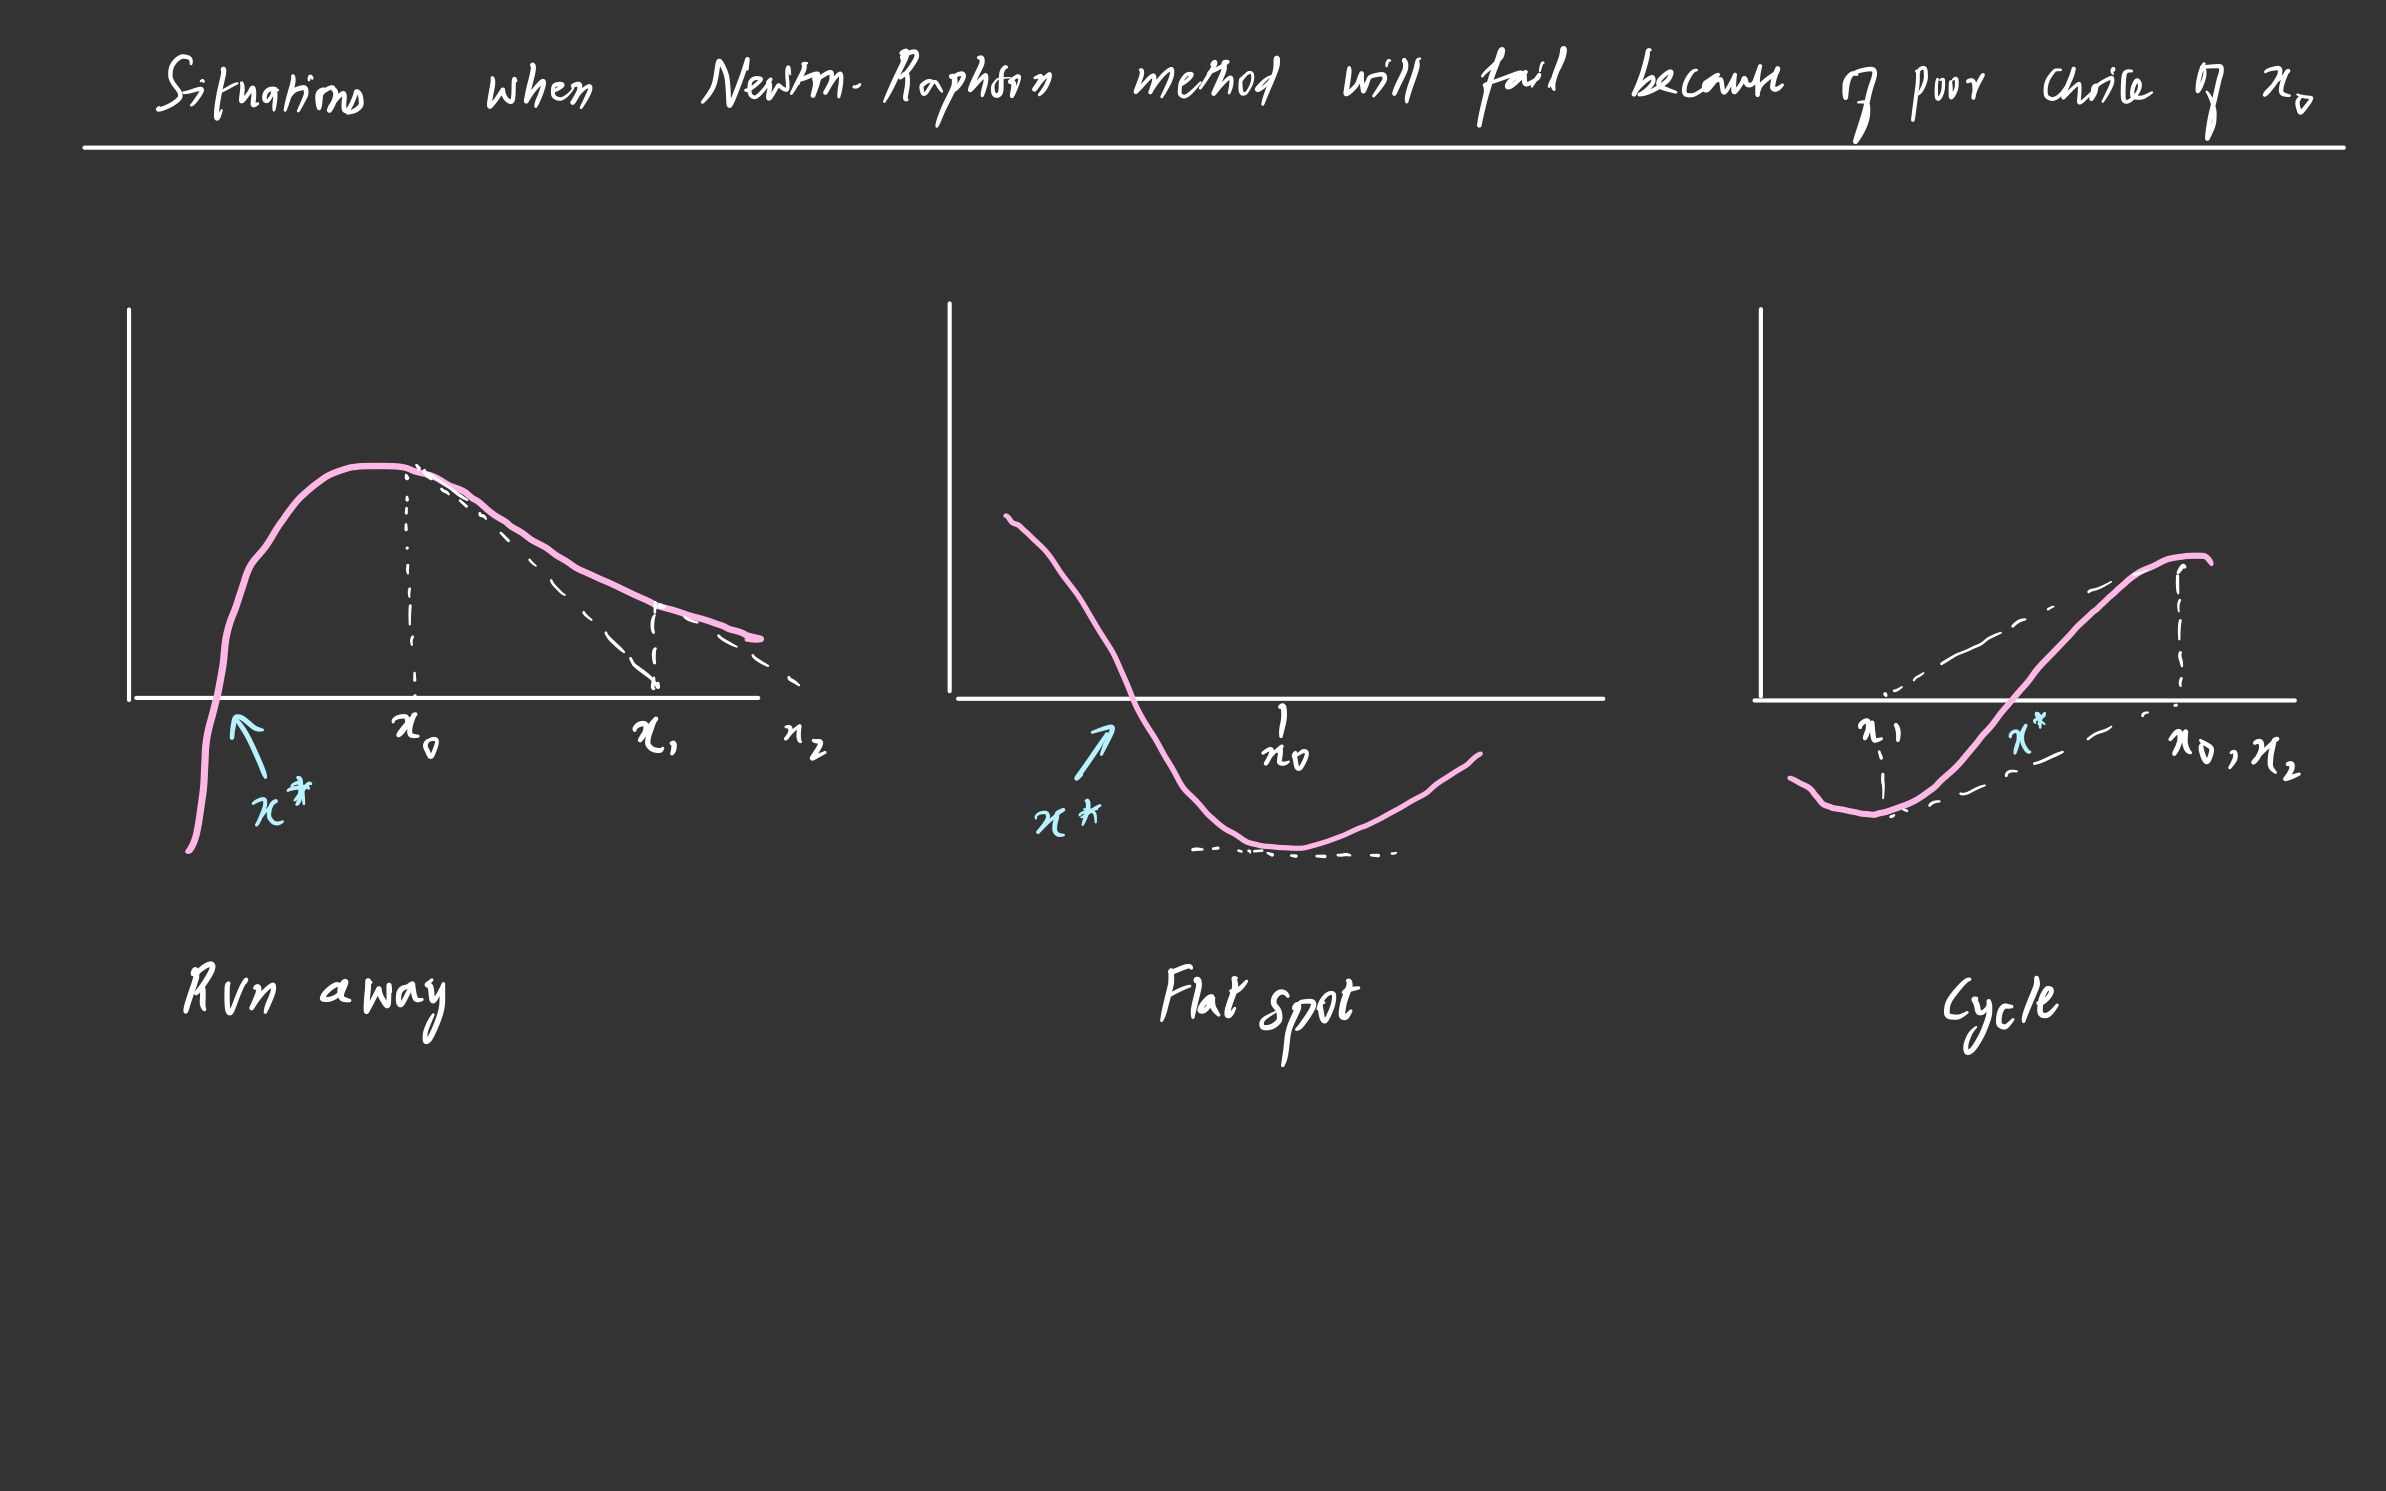 Situations when Newton-Raphson method will fail because of poor choice of x₀
x₀
x₁
x₂
x*
x₀
x*
x₁
x*
x₀, x₂
Run away
Flat spot
Cycle